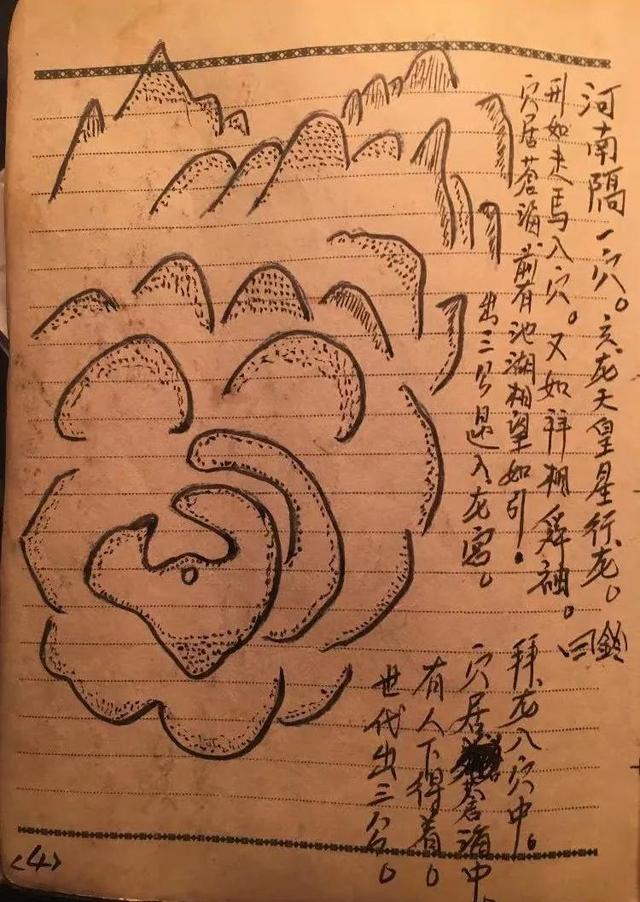 河南隔一穴。亥龙天皇星行龙。鈐
曰
形如走馬入穴。又如祥舞袖。
穴居蒼海前有池湖相望如引。
出三公還入龙宫。
拜龙入穴中。
穴居蒼海中。
有人下得着。
世代出三公。
<4>